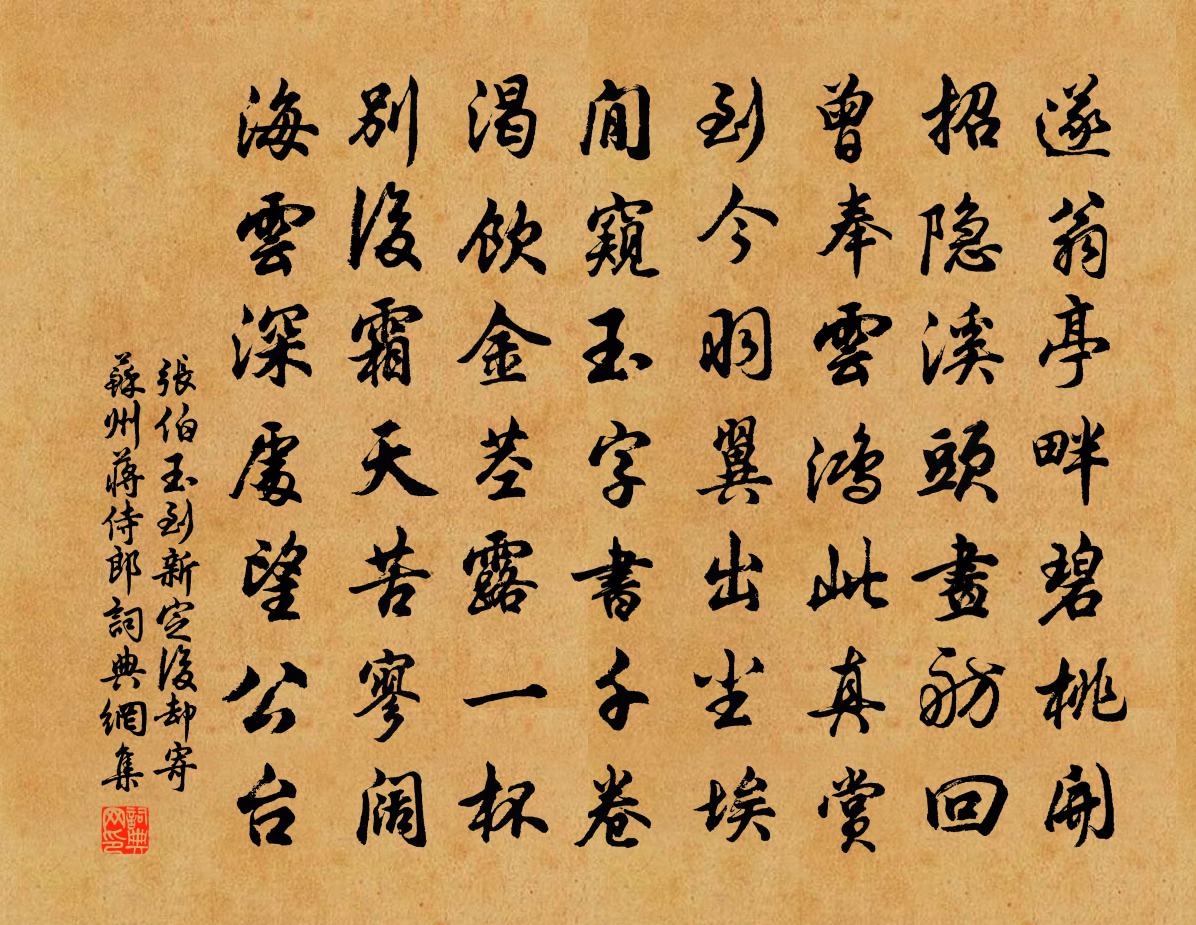 遂翁亭畔碧桃開
招隐溪頭畫舫回
曾奉雲鴻此真賞
到今羽翼出尘埃
閒窺玉字書千卷
渴飲金莖露一杯
別後霜天苦寥闊
海雲深處望公台
張伯玉到新定後却寄
蘇州蔣侍郎詞典網集
詞典
网印